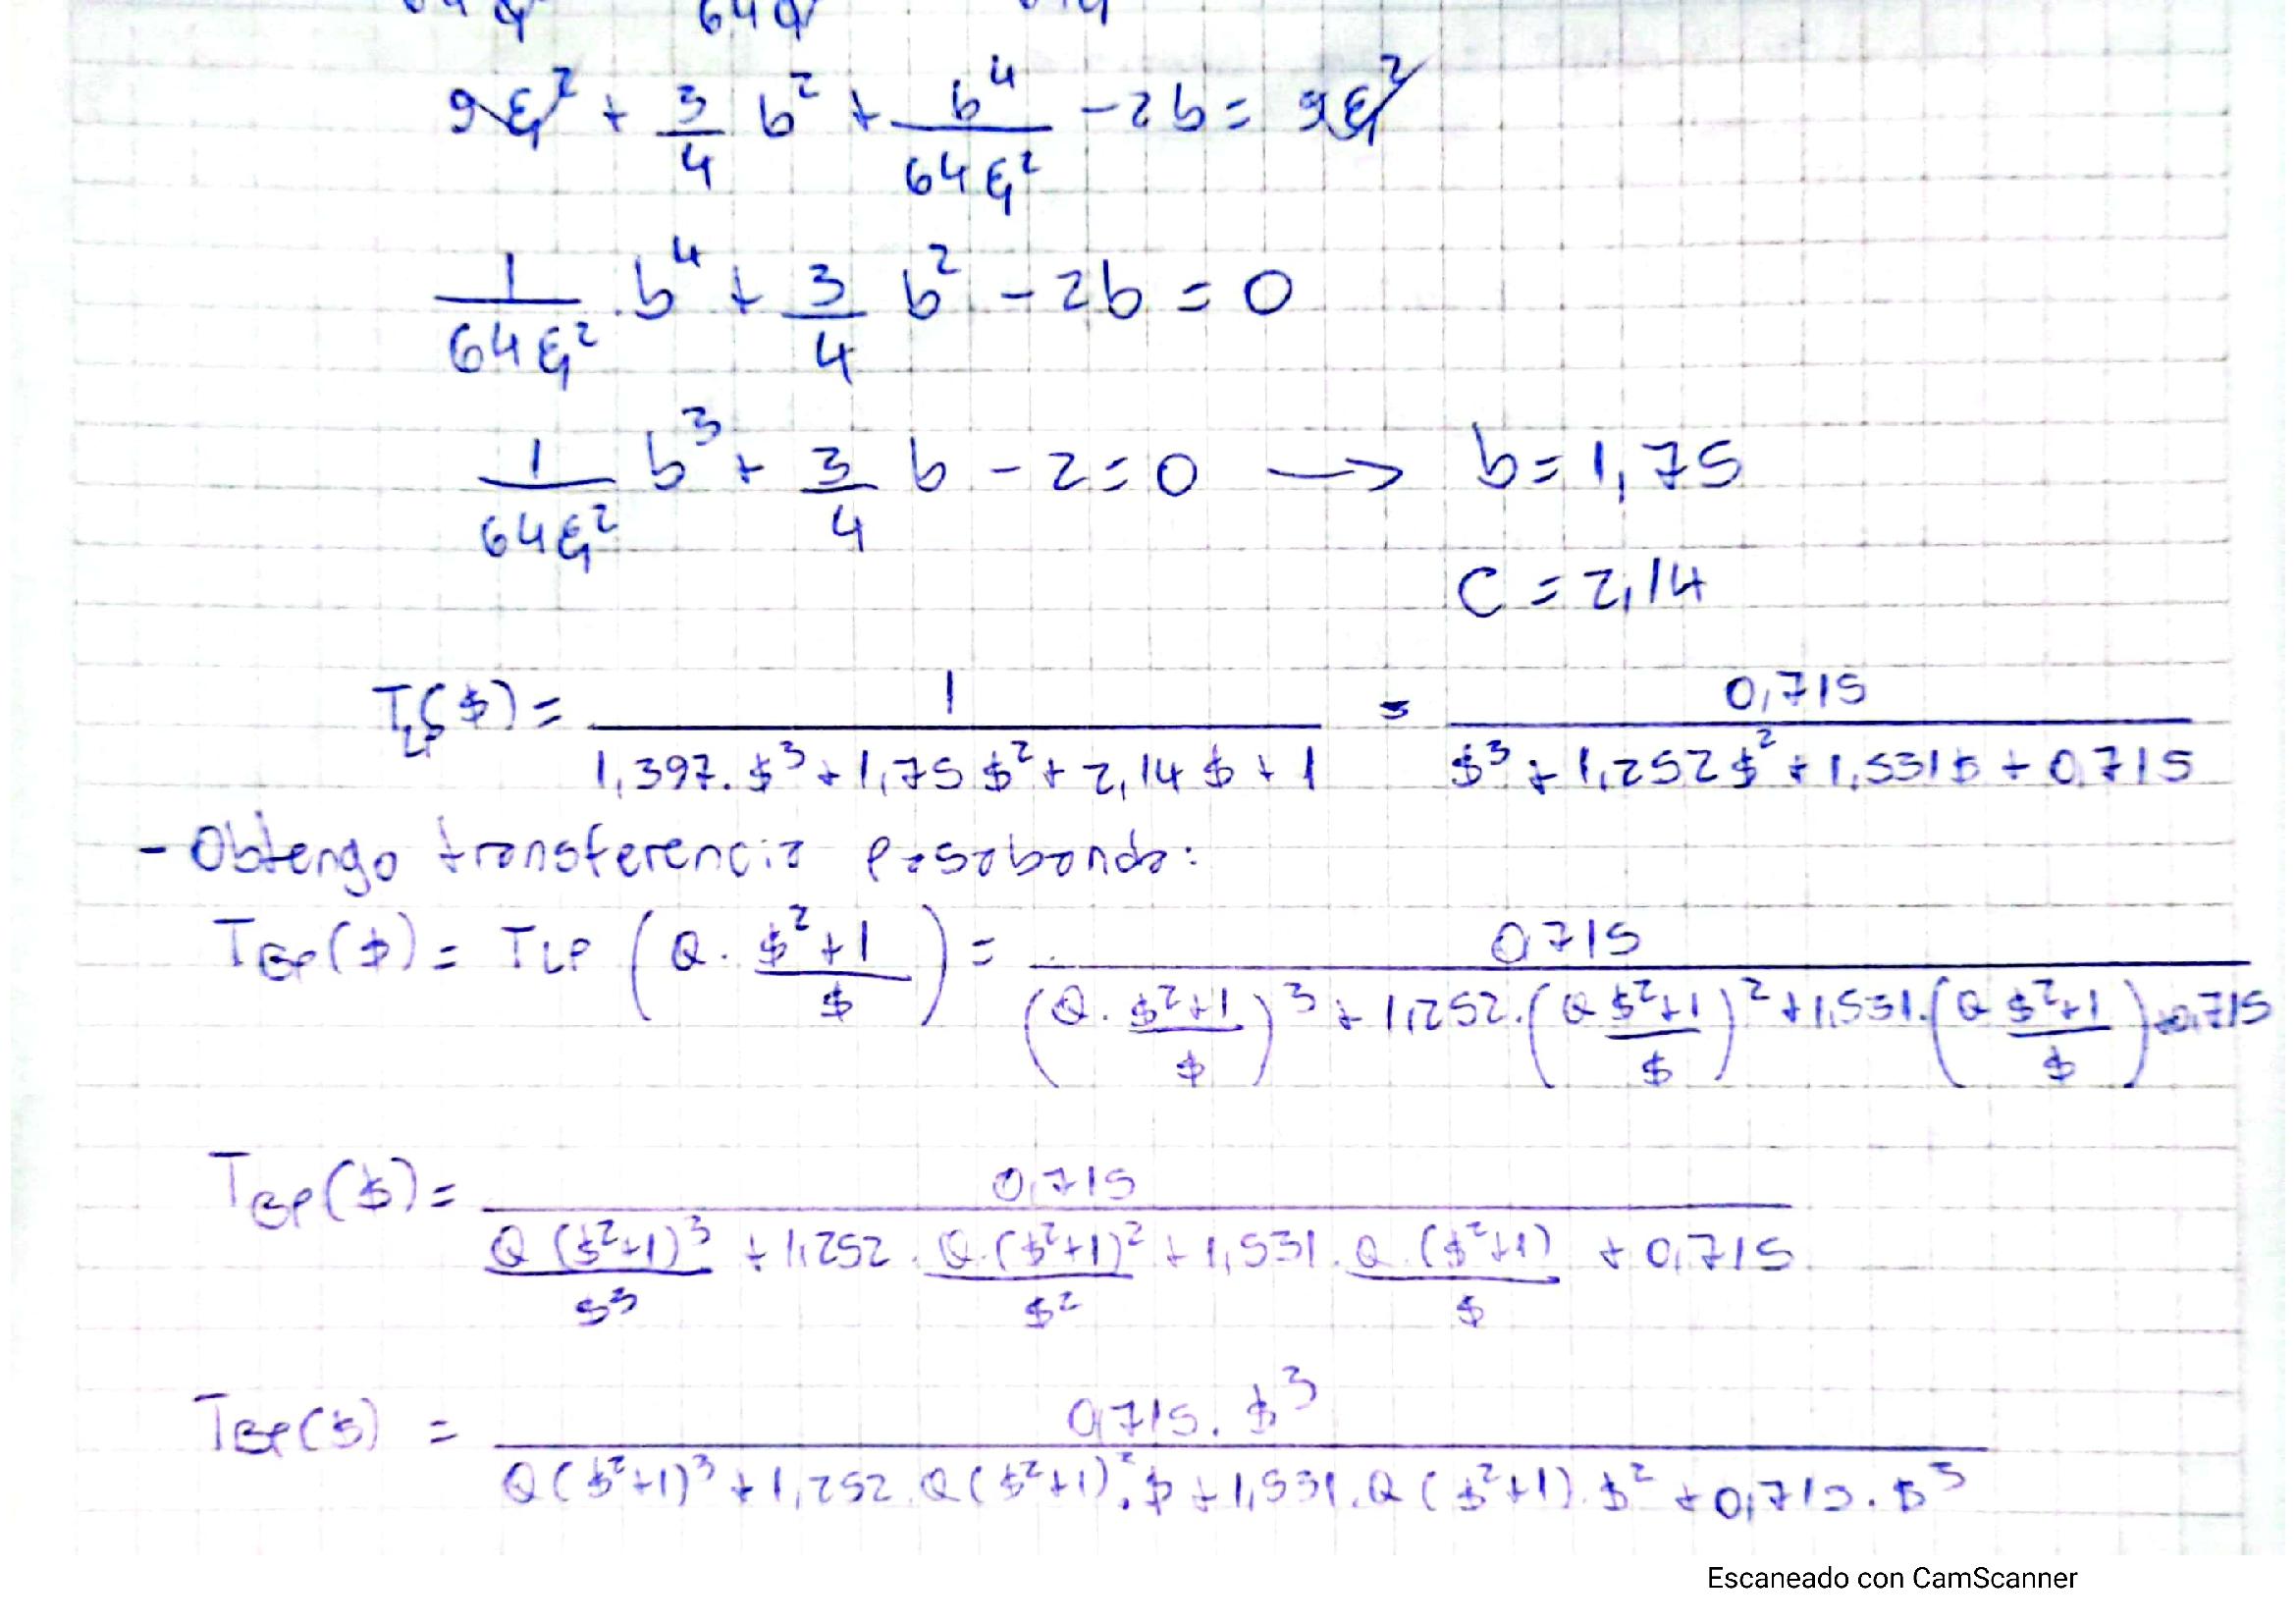 9ξ² + 3/4 b² + b⁴/(64ξ²) - 2b = 9ξ²
1/(64ξ²) . b⁴ + 3/4 b² - 2b = 0
1/(64ξ²) b³ + 3/4 b - 2 = 0 → b = 1,75
C = 2,14
T_LP($) = 1/(1,397.$³ + 1,75 $² + 2,14 $ + 1) = 0,715/($³ + 1,252$² + 1,531$ + 0,715)
- Obtengo transferencia pasabanda:
T_BP($) = T_LP (Q. ($²+1)/$) = 0,715/((Q. ($²+1)/$)³ + 1,252.(Q ($²+1)/$)² + 1,531.(Q ($²+1)/$) + 0,715)
T_BP($) = 0,715/(Q($²+1)³/$³ + 1,252 . Q.($²+1)²/$² + 1,531. Q.($²+1)/$ + 0,715)
T_BP($) = 0,715.$³/(Q($²+1)³ + 1,252.Q($²+1)².$ + 1,531.Q($²+1).$² + 0,715.$³)
Escaneado con CamScanner